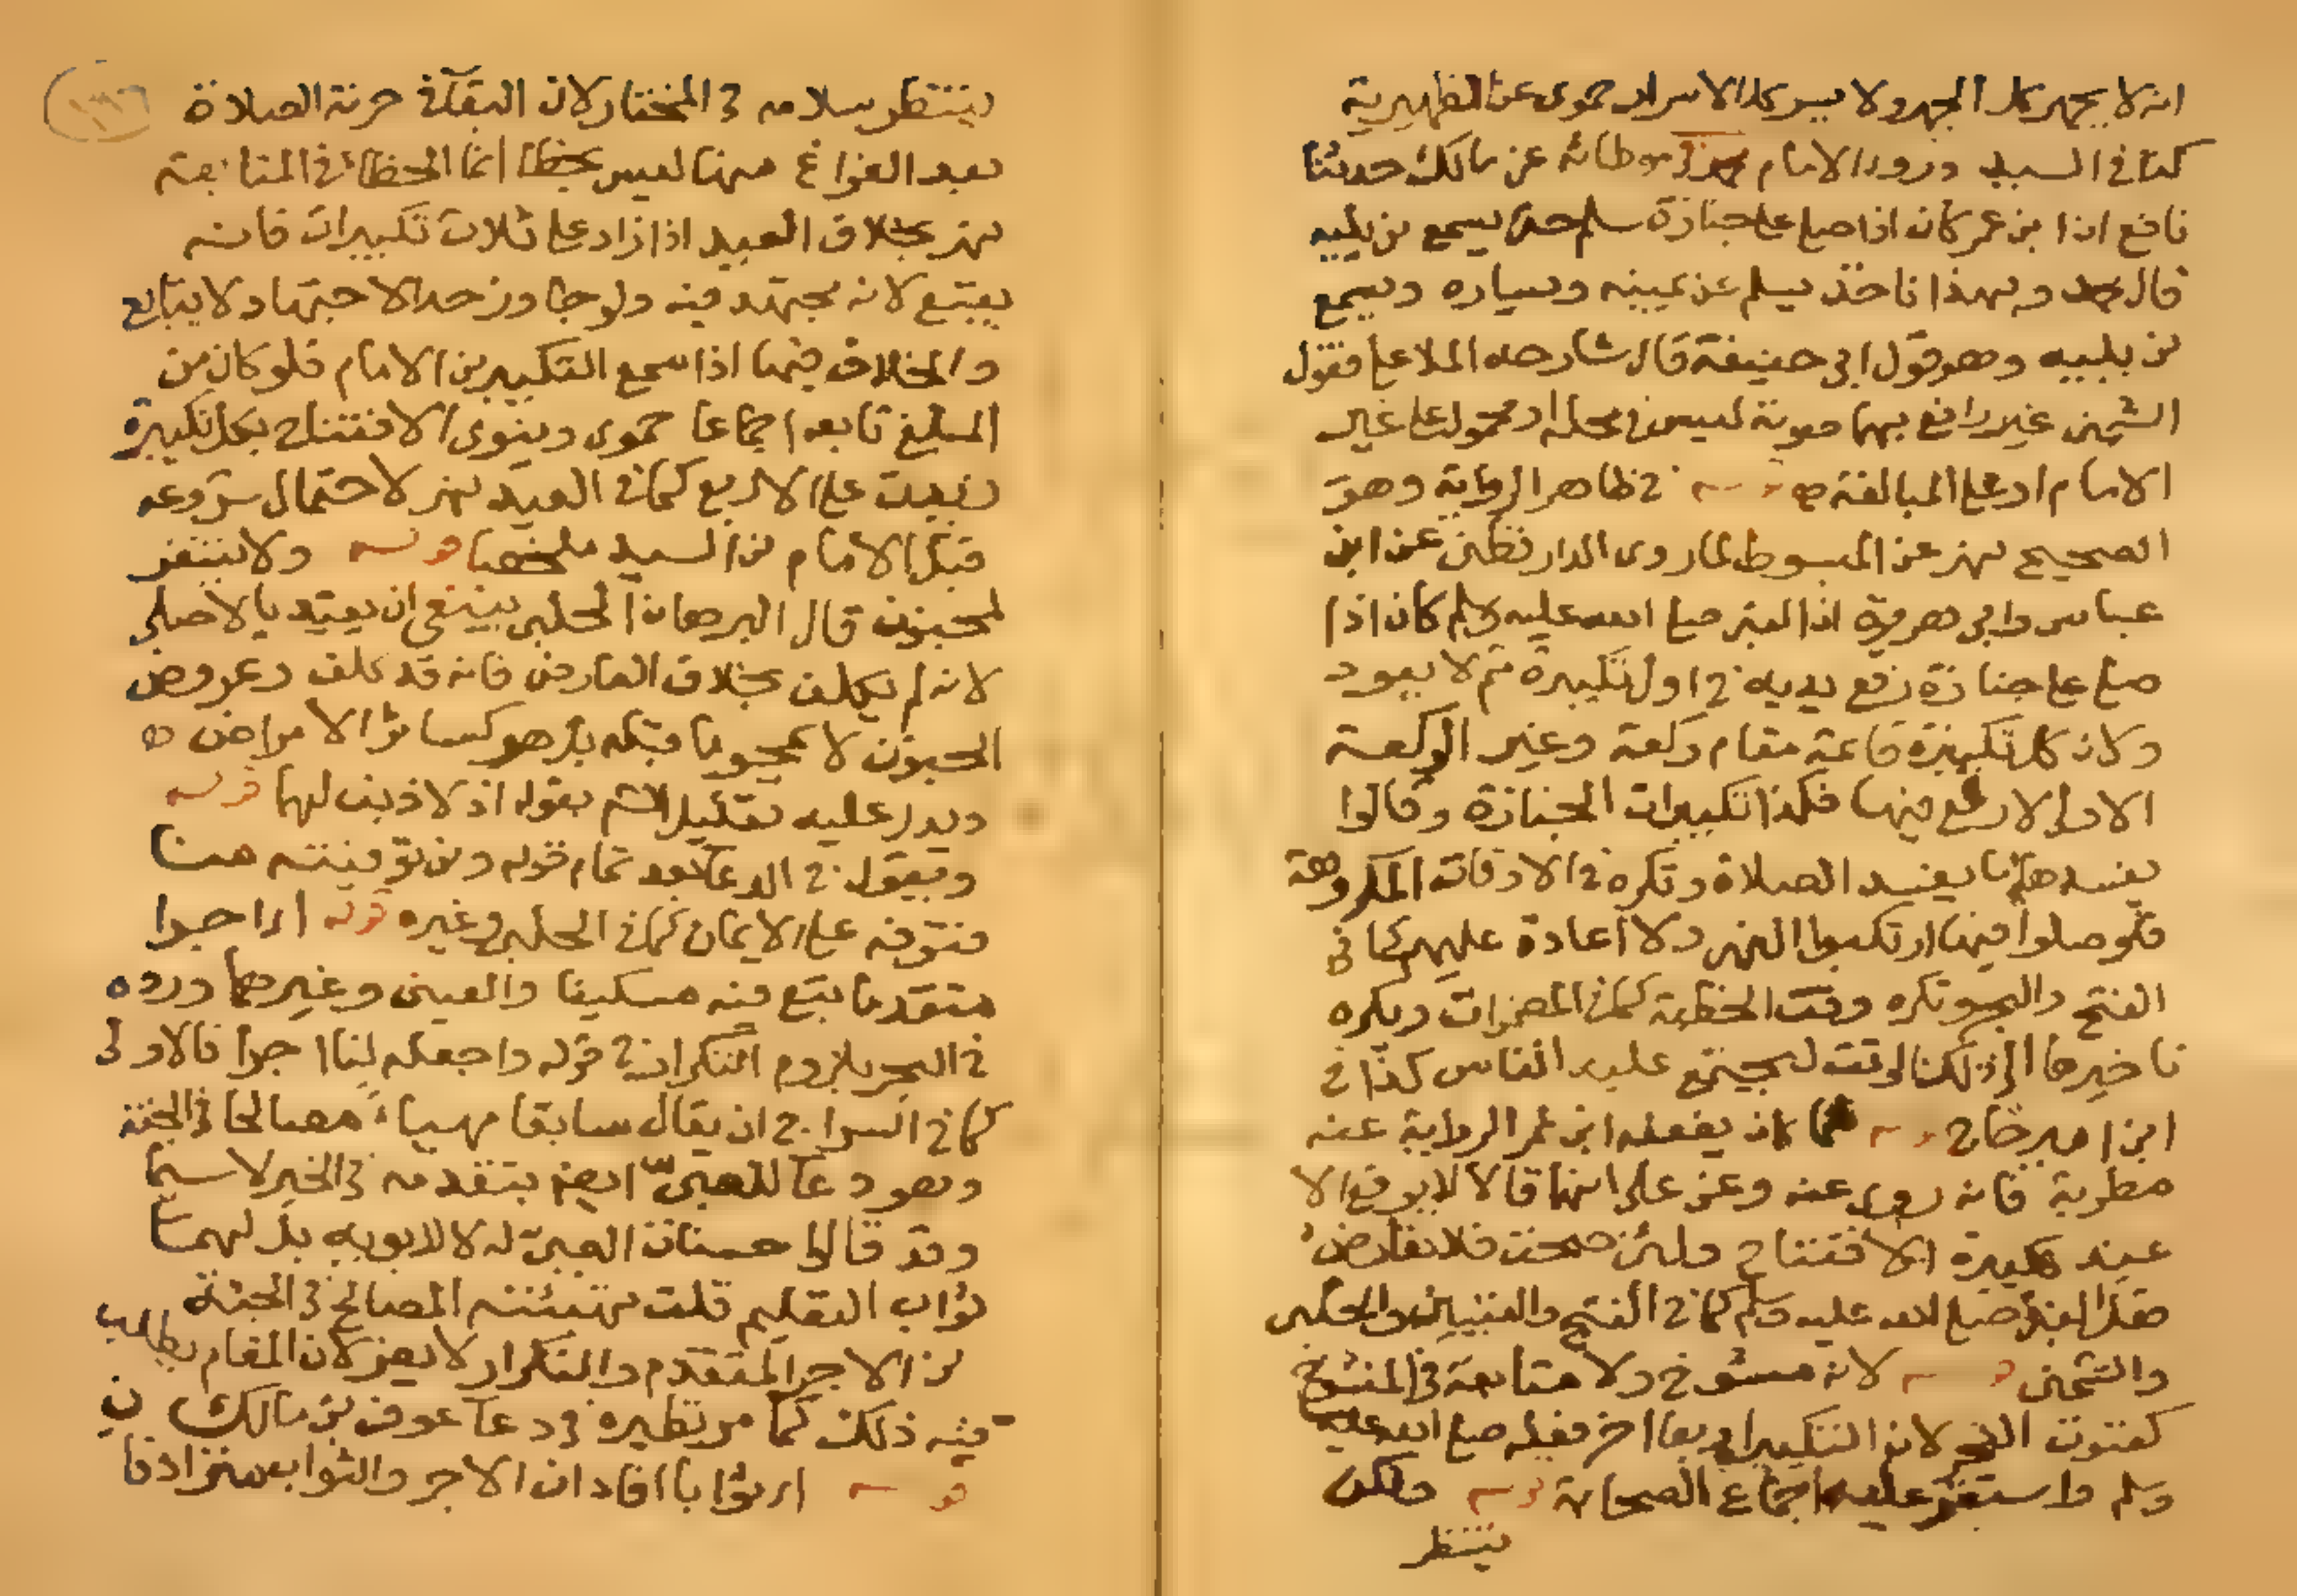 انه لا يجهر كل الجهر ولا يسر كل الاسرار حموى عن الظهيرية
كذا في السيد وروى الامام محمد في موطائه عن مالك حدثنا
نافع ان ابن عمر كان اذا صلى على جنازة سلم حتى يسمع من يليه
قال محمد وبهذا ناخذ يسلم عن يمينه ويساره ويسمع
من يليه وهو قول ابى حنيفة قال شارحه الملا على فقول
الشمنى غير رافع بهما صوته ليس في محله او محمول على غير
الامام او على المبالغة اه قوله في ظاهر الرواية وهو
الصحيح نهر عن المبسوط لما روى الدارقطنى عن ابن
عباس وابى هريرة ان النبى صلى الله عليه وسلم كان اذا
صلى على جنازة رفع يديه في اول تكبيرة ثم لا يعود
ولان كل تكبيرة قائمة مقام ركعة وغير الركعة
الاولى لا رفع فيها فكذا تكبيرات الجنازة وقالوا
يفسدها ما يفسد الصلاة وتكره في الاوقات المكروهة
فلو صلوا فيها ارتكبوا النهى ولا اعادة عليهم كما في
الفتح والبحر وتكره وقت الخطبة كما في المضمرات ويكره
تاخيرها الى ذلك الوقت ليجتمع عليه الناس كذا في
ابن امير حاج قوله كما كان يفعله ابن عمر الرواية عنه
مضطربة فانه روى عنه وعن على انهما قالا لا يرفع الا
عند تكبيرة الافتتاح ولئن صحت فلا تعارض
فعل النبى صلى الله عليه وسلم كما في الفتح والتبيين والحلبى
والشمنى قوله لانه منسوخ ولا متابعة في المنسوخ
كقنوت الفجر لان التكبير اربعا اخر فعله صلى الله عليه
وسلم واستقر عليه اجماع الصحابة قوله ولكن
ينتظر
ينتظر سلامه في المختار لان البقاء في حرمة الصلاة
بعد الفراغ منها ليس بخطا انما الخطا في المتابعة
نهر بخلاف العيد اذا زاد على ثلاث تكبيرات فانه
يتبع لانه مجتهد فيه ولو جاوز حد الاجتهاد لا يتابع
والخلاف فيما اذا سمع التكبير من الامام فلو كان من
المبلغ تابعه اجماعا حموى وينوى الافتتاح بكل تكبيرة
زيدت على الاربع كما في العيد نهر لاحتمال شروعه
قبل الامام من السيد ملخصا قوله ولا يستغفر
لمجنون قال البرهان الحلبى ينبغى ان يقيد بالاصلى
لانه لم يكلف بخلاف العارض فانه قد كلف وعروض
الجنون لا يمحو ما قبله بل هو كسائر الامراض اه
ويدل عليه تعليل الشم بقوله اذ لا ذنب لهما قوله
ويقول في الدعاء بعد تمام قوله ومن توفيته منا
فتوفه على الايمان كما في الحلبى وغيره قوله اى اجرا
متقدما يتبع فيه مسكينا والعينى وغيرهما ورده
في البحر بلزوم التكرار في قوله واجعله لنا اجرا فالاولى
كما في السراج ان يقال سابقا مهيئا مصالحا في الجنة
وهو دعاء للصبى ايضا بتقدمه في الخير لا سيما
وقد قالوا حسنات الصبى له لا لابويه بل لهما
ثواب التعليم قلت تهيئته المصالح في الجنة
من الاجر المتقدم والتكرار لا يضر لان المقام يطلب
فيه ذلك كما مر نظيره في دعاء عوف بن مالك
قوله اى ثوابا افاد ان الاجر والثواب مترادفا
ن